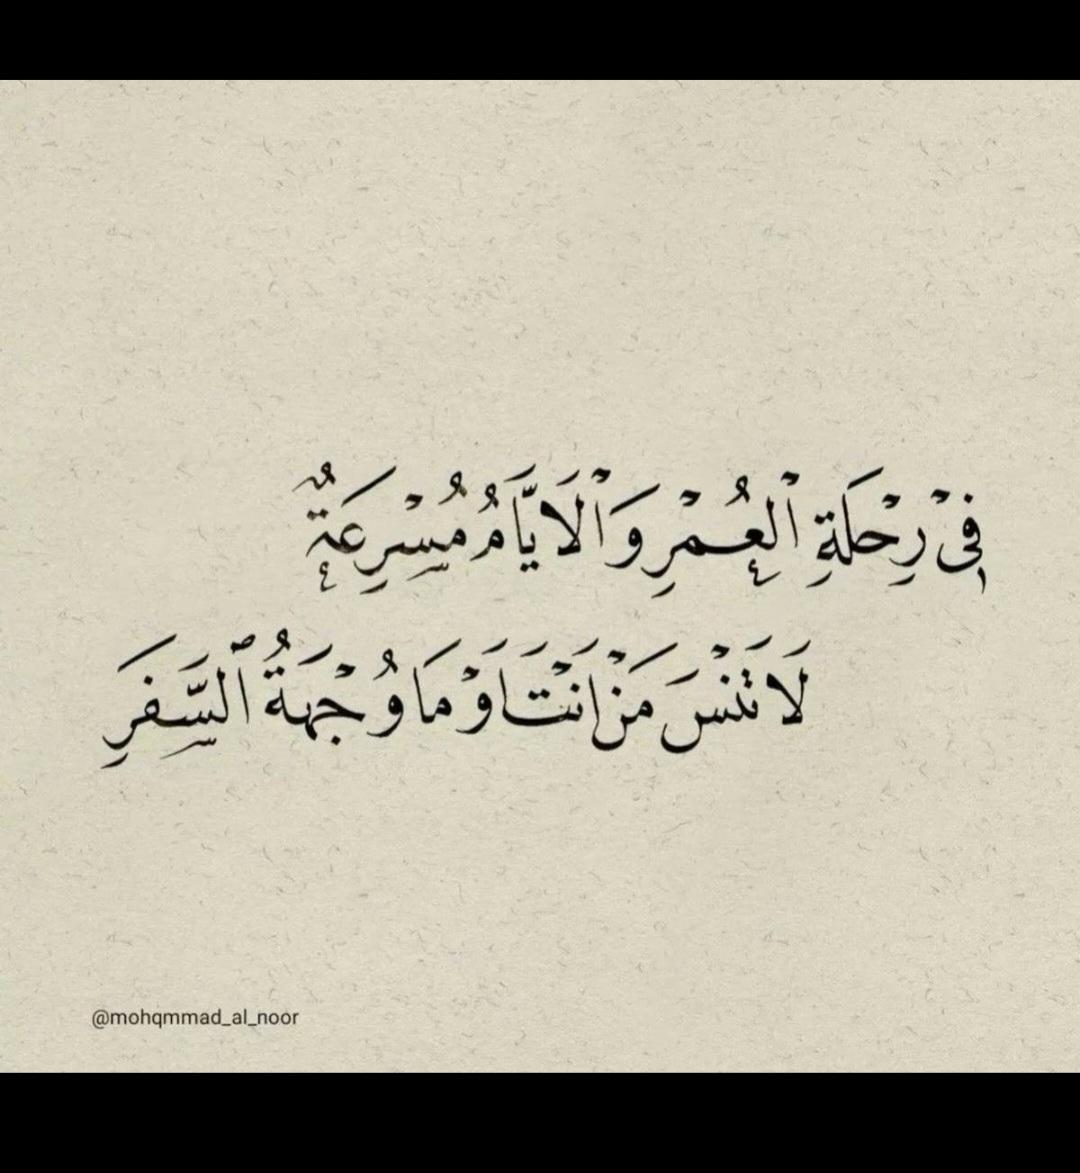 فِيْ رِحْلَةِ ٱلْعُمْرِ وَٱلْاَيَّامُ مُسْرِعَةٌ
لَا تَنْسَ مَنْ اَنْتَ اَوْ مَا وُجْهَةُ ٱلسَّفَرِ
@mohqmmad_al_noor